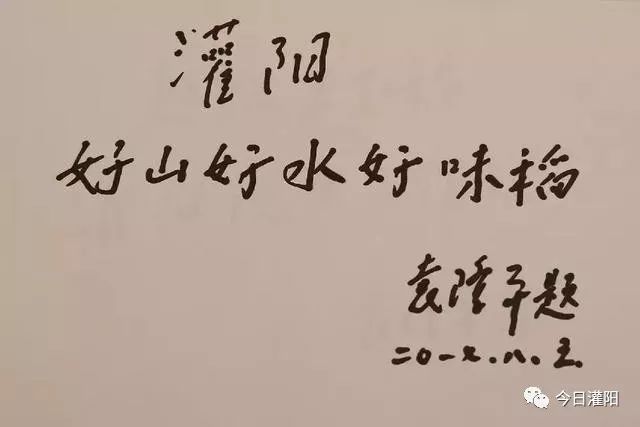 灌阳
好山好水好味稻
袁隆平题
二〇一七.八.五.
今日灌阳